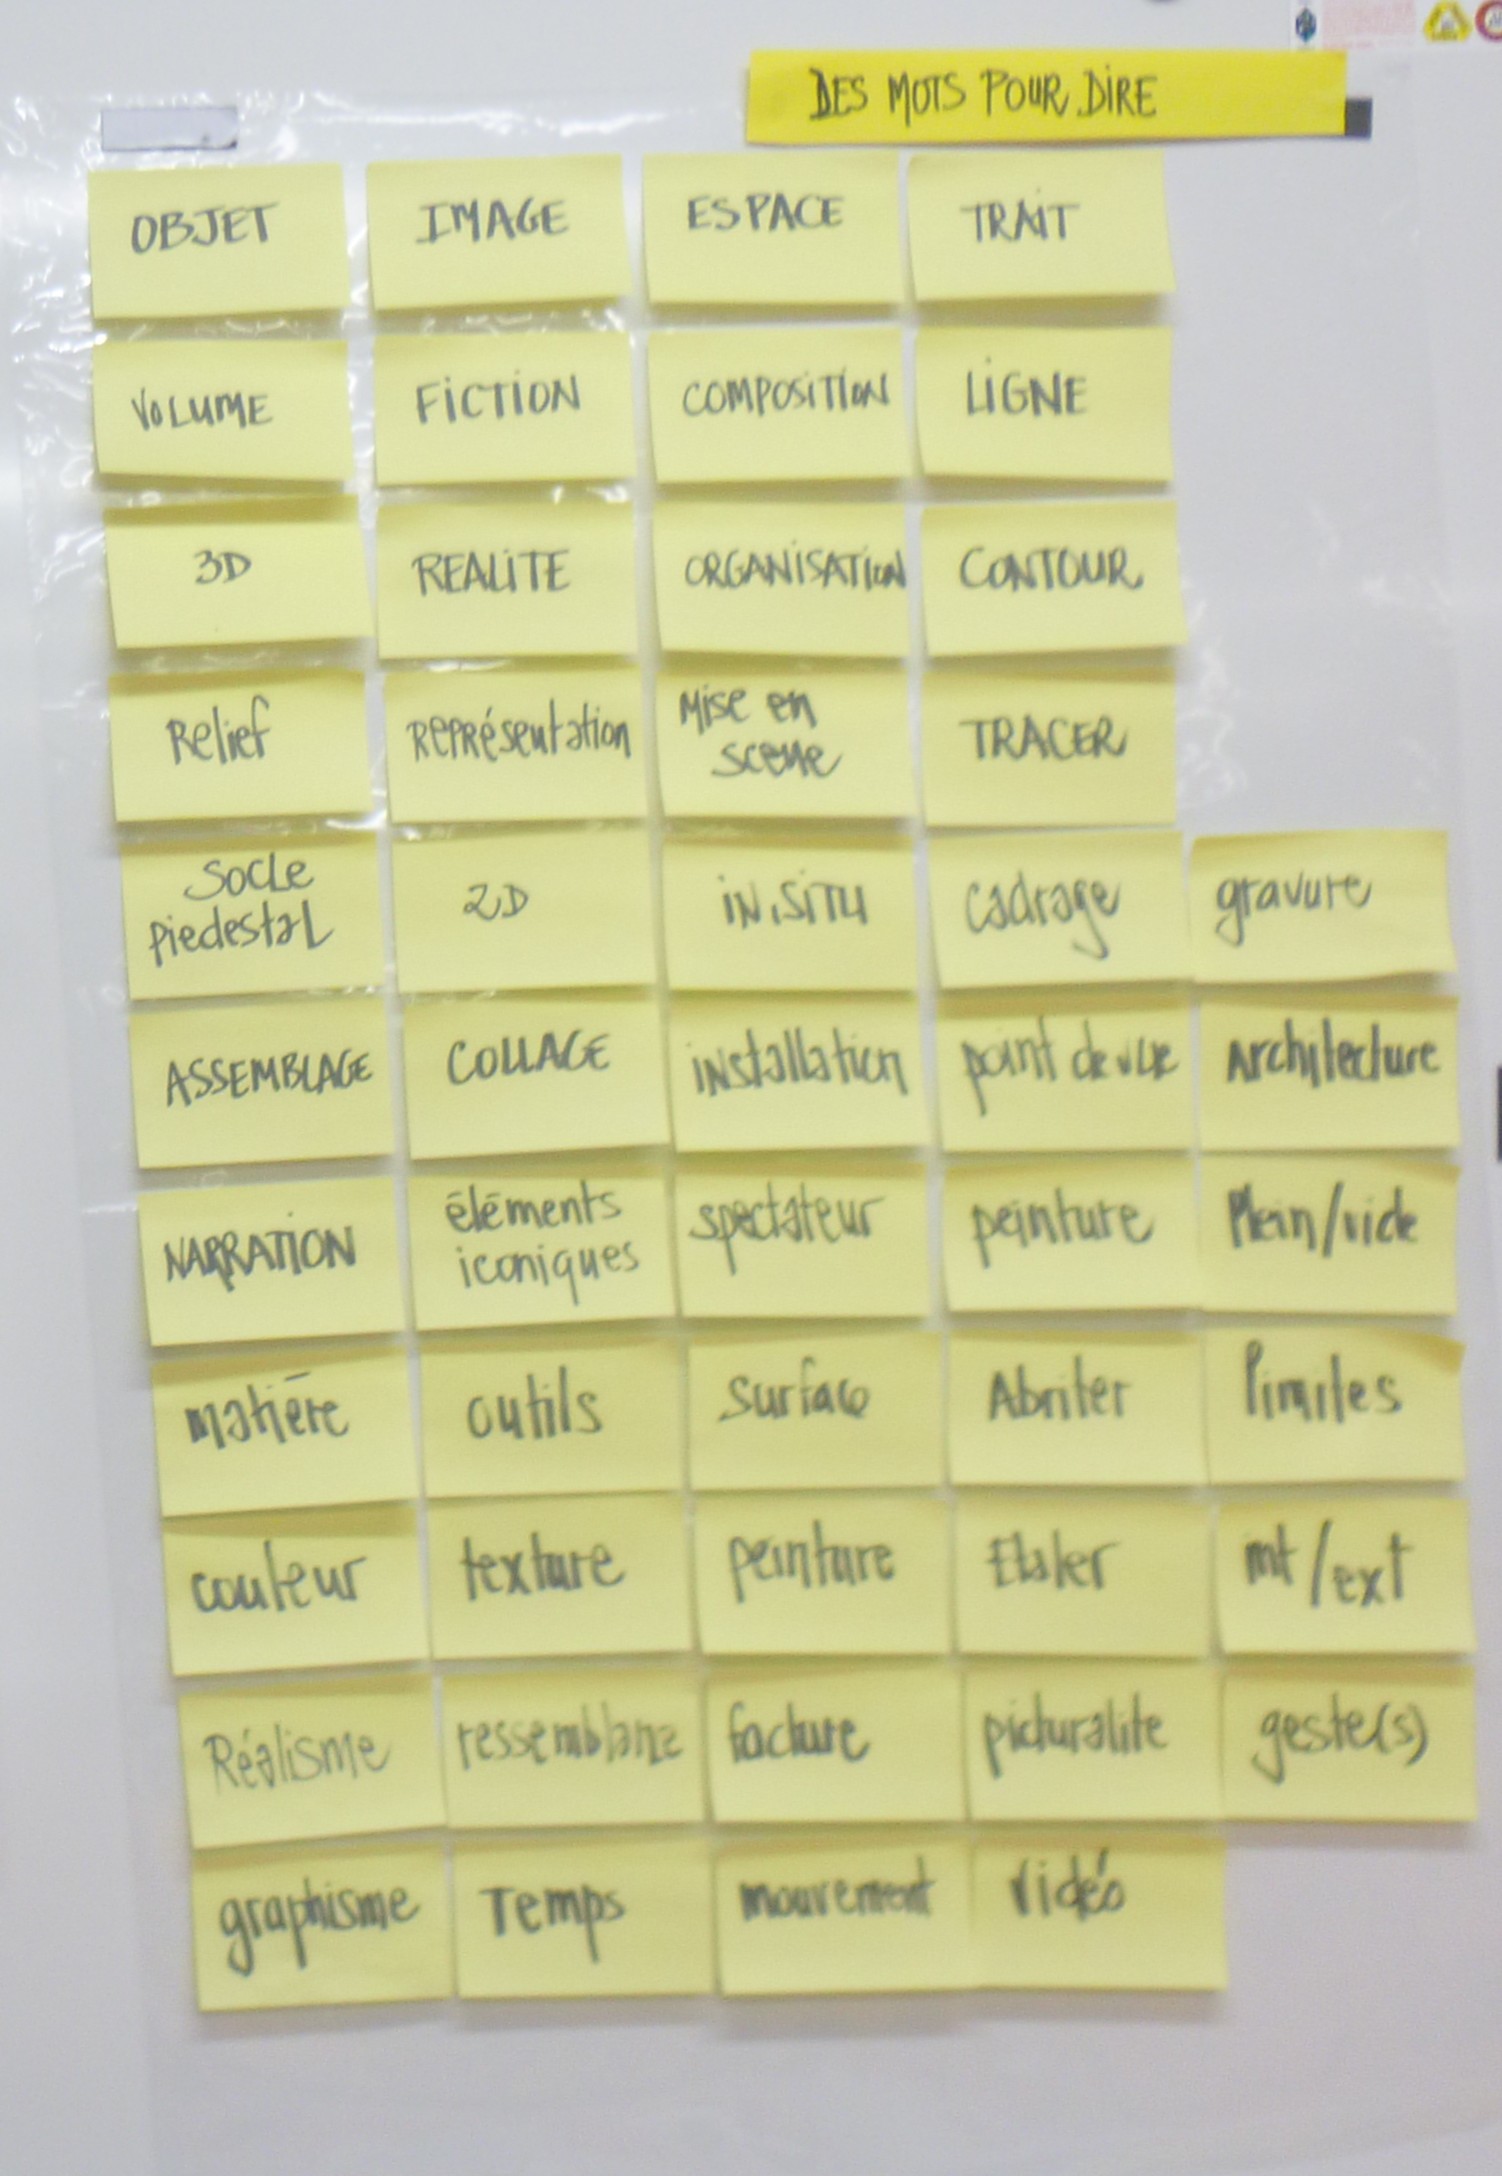 DES MOTS POUR DIRE
OBJET IMAGE ESPACE TRAiT
VOLUME FiCTiON COMPOSiTiON LiGNE
3D REALiTE ORGANiSATiON CONTOUR
Relief Représentation Mise en scene TRACER
SOCLE piedestal 2D iN.SiTU cadrage gravure
ASSEMBLAGE COLLAGE installation point de vue Architecture
NARRATION éléments iconiques spectateur peinture Plein/vide
matière outils surface Abriter limites
couleur texture peinture Etaler int/ext
Réalisme ressemblance facture picturalite geste(s)
graphisme Temps mouvement vidéo